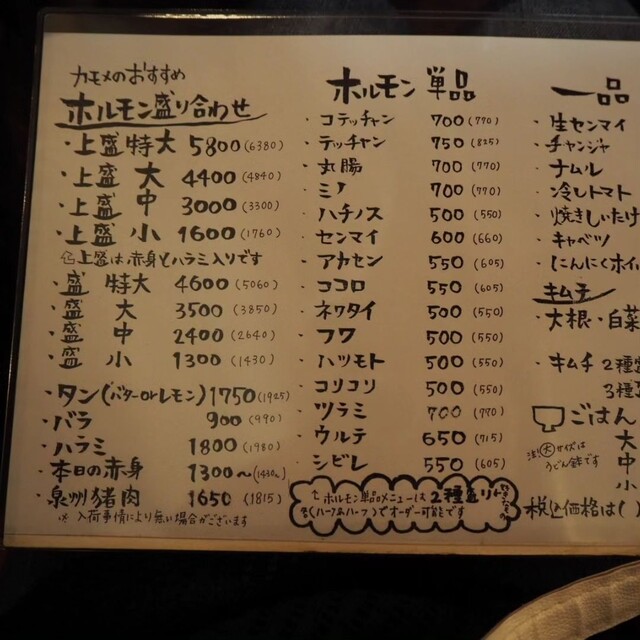 カモメのおすすめ
ホルモン盛り合わせ
・上盛特大 5800(6380)
・上盛 大 4400(4840)
・上盛 中 3000(3300)
・上盛 小 1600(1760)
上盛は赤身とハラミ入りです
・盛 特大 4600(5060)
・盛 大 3500(3850)
・盛 中 2400(2640)
・盛 小 1300(1430)
・タン(バターorレモン)1750(1925)
・バラ 900(990)
・ハラミ 1800(1980)
・本日の赤身 1300〜(1430〜)
・泉州猪肉 1650(1815)
※入荷事情により無い場合がございます
ホルモン 単品
・コテッチャン 700(770)
・テッチャン 750(825)
・丸腸 700(770)
・ミノ 700(770)
・ハチノス 500(550)
・センマイ 600(660)
・アカセン 550(605)
・ココロ 550(605)
・ネクタイ 500(550)
・フワ 500(550)
・ハツモト 500(550)
・コリコリ 500(550)
・ツラミ 700(770)
・ウルテ 650(715)
・シビレ 550(605)
ホルモン単品メニューは2種盛り
(ハーフ&ハーフ)でオーダー可能です
一品
・生センマイ
・チャンジャ
・ナムル
・冷しトマト
・焼きしいたけ
・キャベツ
・にんにくホイ
キムチ
・大根・白菜
・キムチ2種
3種
ごはん
大
中
小
うどん鉢です
税込価格は( )